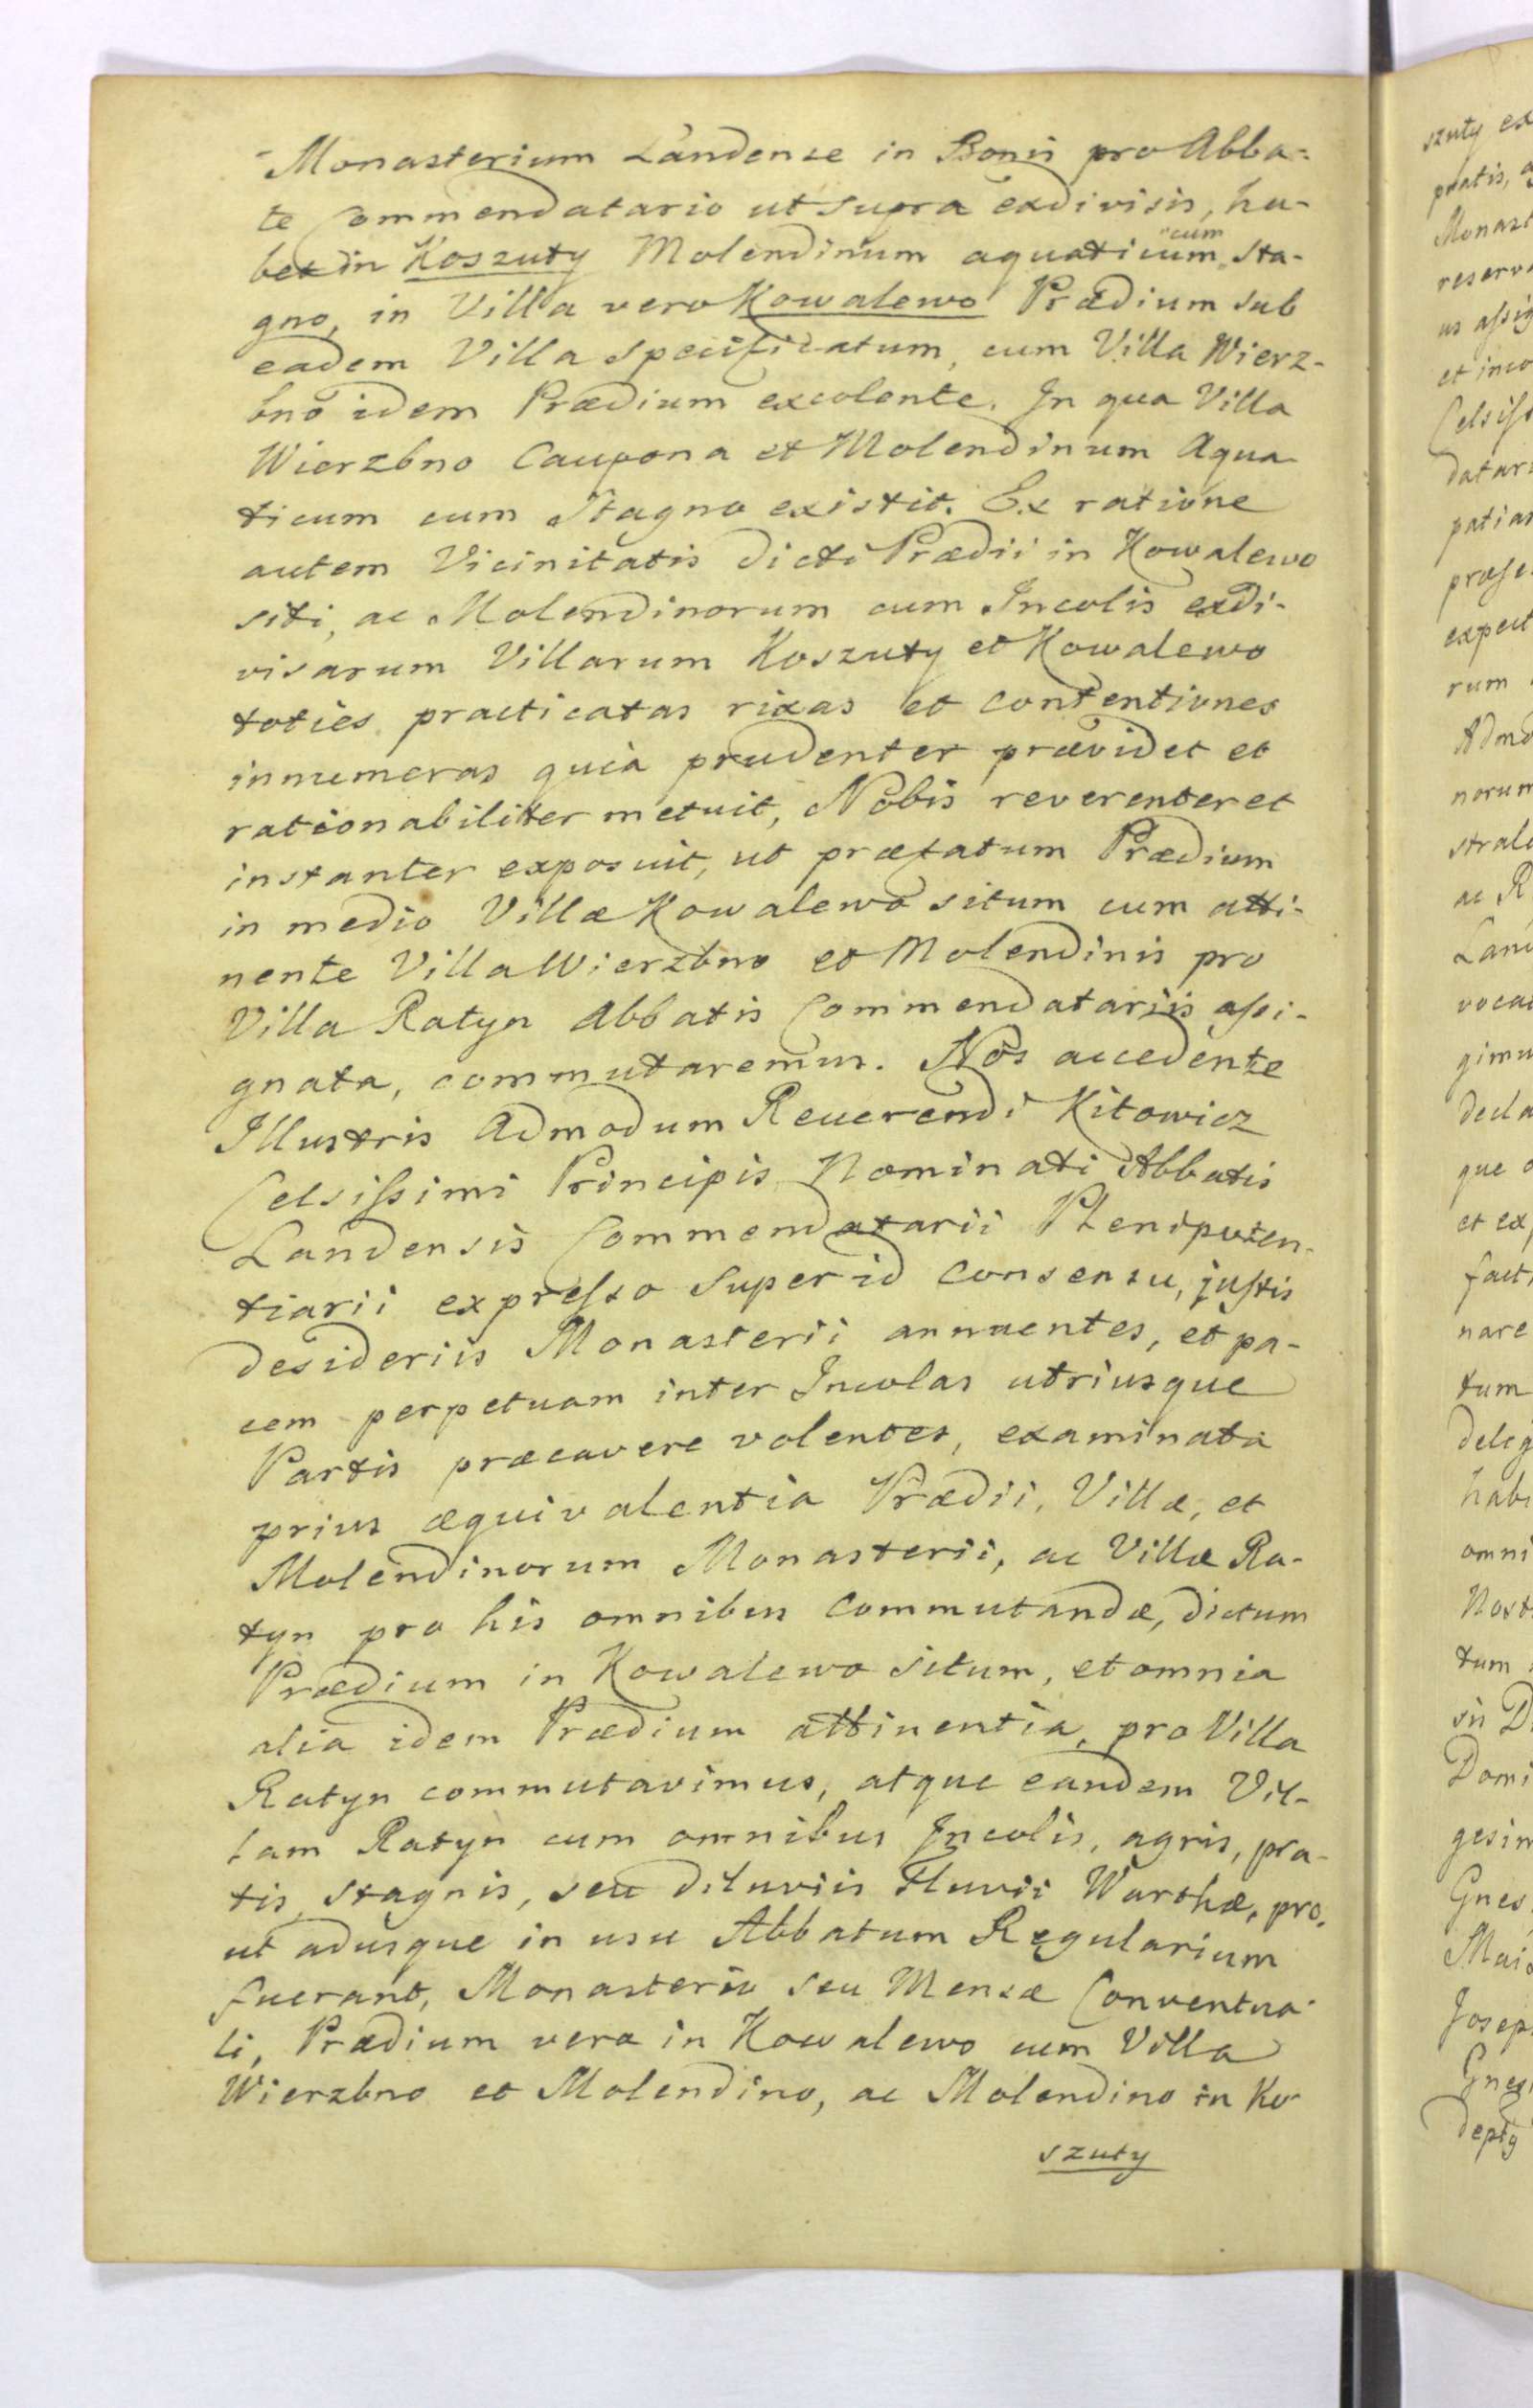 Monasterium Landense in Bonis pro Abba-
te Commendatario ut supra exdivisis, ha-
bet in Koszuty Molendinum aquaticum "cum" Sta-
gno, in Villa vero Kowalewo Prædium sub
eadem Villa specificatum, cum Villa Wierz-
bno idem Prædium excolente. In qua Villa
Wierzbno Caupona et Molendinum Aqua
ticum cum Stagno existit. Ex ratione
autem Vicinitatis dicti Prædii in Kowalewo
siti, ac Molendinorum cum Incolis exdi-
visarum Villarum Koszuty et Kowalewo
toties practicatas rixas et contentiones
innumeras quia prudenter prævidet et
rationabiliter metuit, Nobis reverenter et
instanter exposuit, ut præfatum Prædium
in medio Villæ Kowalewo situm cum atti-
nente Villa Wierzbno et Molendinis pro
Villa Ratyn Abbatis Commendatariis assi-
gnata, commutaremus. Nos accedente
Illustris Admodum Reverendi Kitowicz
Celsissimi Principis Nominati Abbatis
Landensis Commendatarii Plenipoten-
tiarii expresso super id consensu, justis
desideriis Monasterii annuentes, et pa-
cem perpetuam inter Incolas utriusque
Partis præcavere volentes, examinata
prius æquivalentia Prædii, Villæ, et
Molendinorum Monasterii, ac Villæ Ra-
tyn pro his omnibus commutandæ, dictum
Prædium in Kowalewo situm, et omnia
alia idem Prædium attinentia, pro Villa
Ratyn commutavimus, atque eandem Vil-
lam Ratyn cum omnibus Incolis, agris, pra-
tis, stagnis, seu diluviis Fluvii Warthæ, pro,
ut adusque in usu Abbatum Regularium
fuerant, Monasterio seu Mensæ Conventua-
li, Prædium vero in Kowalewo cum Villa
Wierzbno et Molendino, ac Molendino in Ko-
szuty
szuty ex
pratis, a
Monast
reserv
us assig
et inco
Celsiss
datar
patia
præse
expect
rum
Admo
norum
stral
ac R
Land
voca
gimu
decla
que
et ex
fact
nare
tum
deleg
habi
omni
Nost
tum
sii D
Domi
gesim
Gnes
Mai
Josep
Gnes